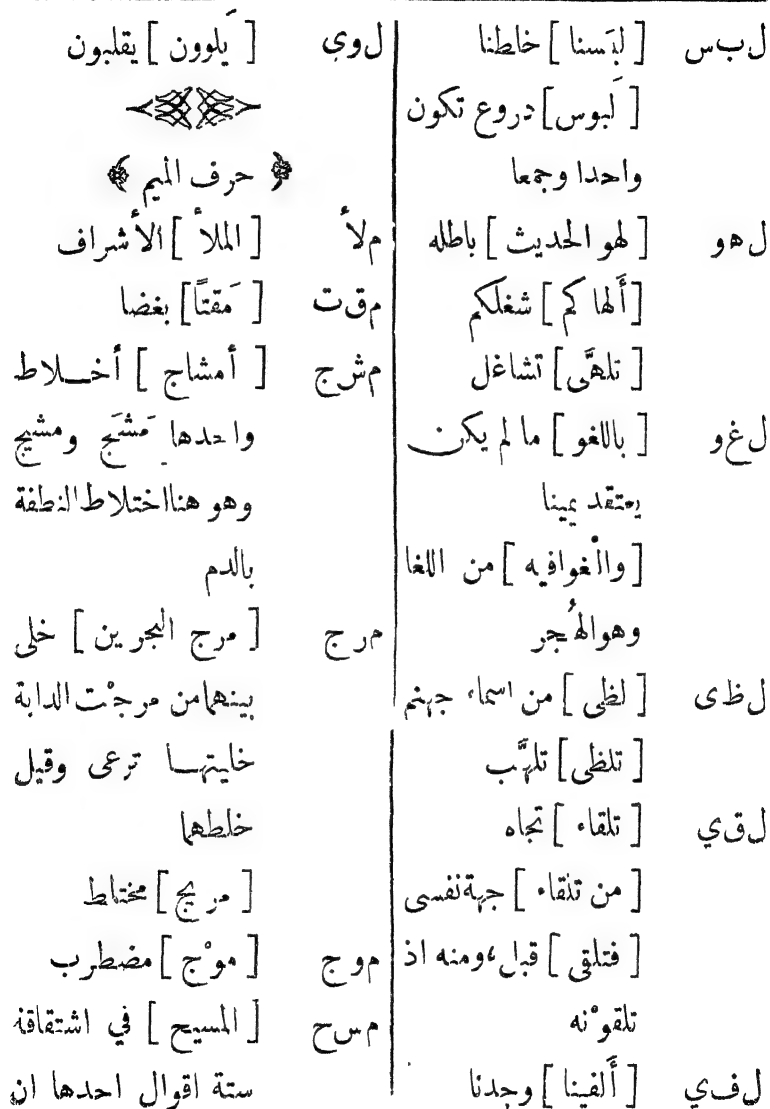 ل ب س [ لبَسنا ] خلطنا
[ لَبوس ] دروع تكون
واحدا وجمعا
ل ه و [ لهو الحديث ] باطله
[ ألها كم ] شغلكم
[ تلهَّى ] تشاغل
ل غ و [ باللغو ] ما لم يكن
يعتقد يمينا
[ والْغوافيه ] من اللغا
وهو الهُجر
ل ظ ى [ لظى ] من اسماء جهنم
[ تلظى ] تلهَّب
ل ق ي [ تلقاء ] تجاه
[ من تلقاء ] جهة نفسى
[ فتلقى ] قبل، ومنه اذ
تلقوْنه
ل ف ي [ ألفينا ] وجدنا
ل و ي [ يَلوون ] يقلبون
﴿ حرف الميم ﴾
م ل أ [ الملأ ] الأشراف
م ق ت [ مَقتاً ] بغضا
م ش ج [ أمشاج ] أخــلاط
واحدها مَشَج ومشيج
وهو هنا اختلاط النطفة
بالدم
م ر ج [ مرج البحرين ] خلى
بينهما من مرجْت الدابة
خليتهــا ترعى وقيل
خلطهما
[ مريج ] مختلط
م و ج [ موْج ] مضطرب
م س ح [ المسيح ] في اشتقاقه
ستة اقوال احدها ان